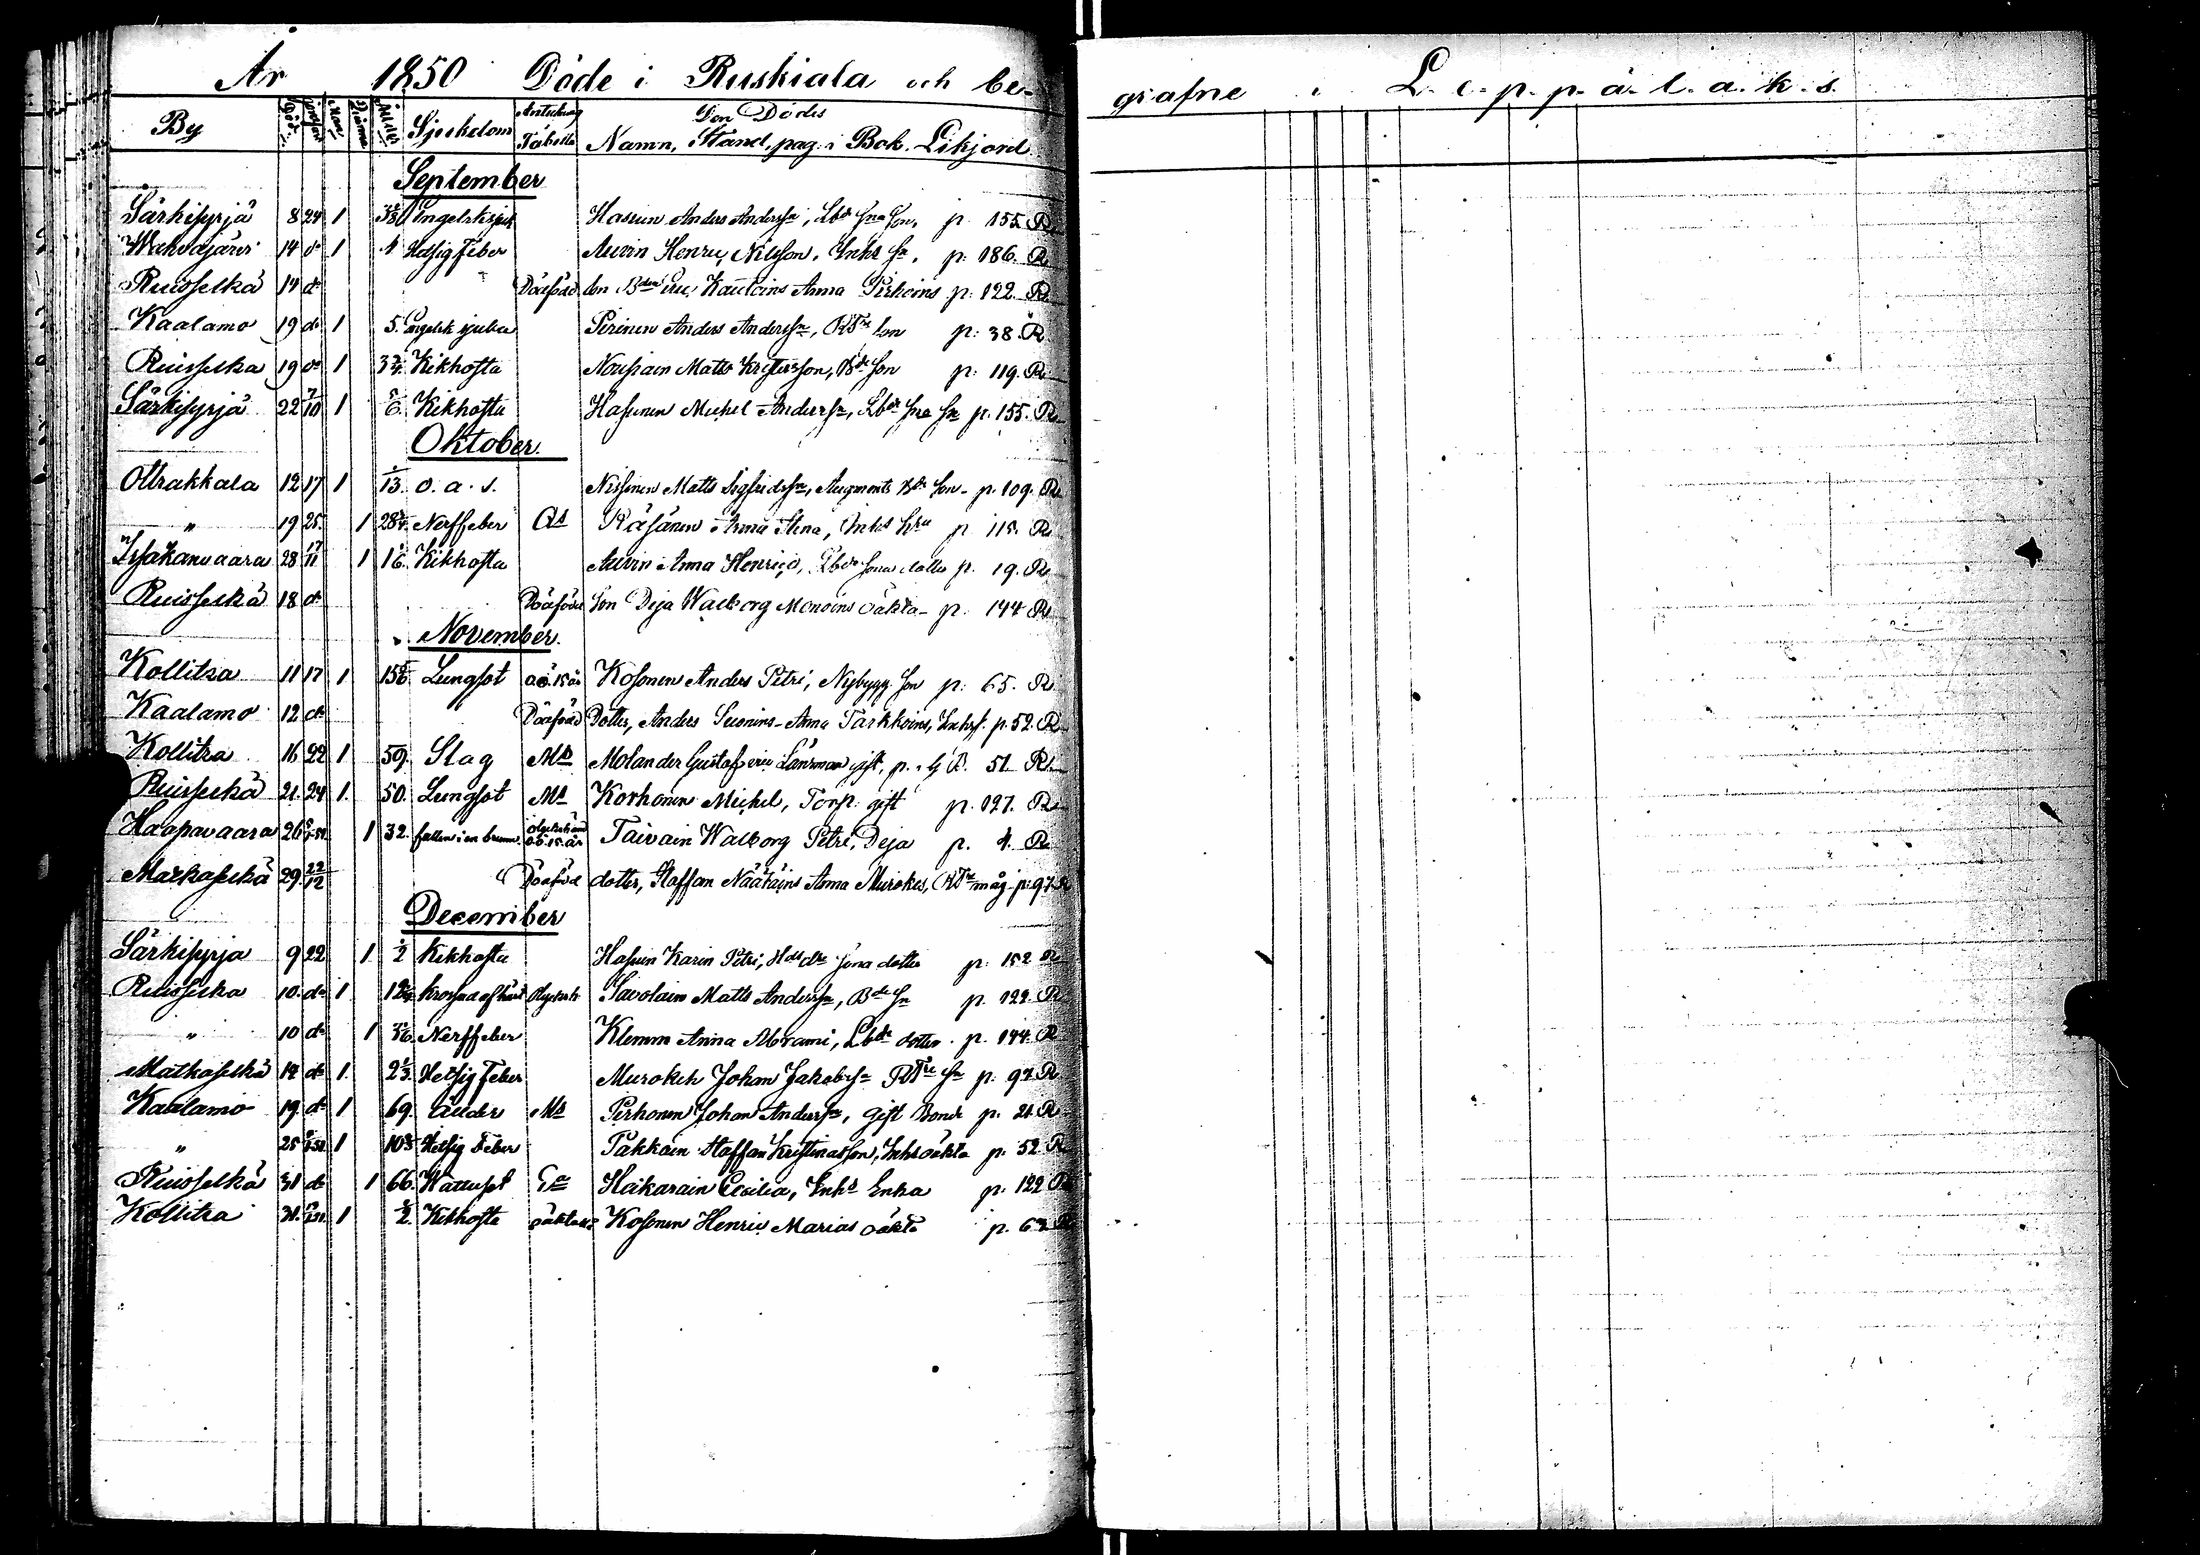 År 1850 Döde i Ruskiala och be-
grafne i L.e.p.p.ä.l.a.k.s.
By Död Jordfäst Man Qvinna Ålder Sjuckdom Anteckning Tabella Den Dödes Namn, Stand, pag. i Bok. Likjord.
September
Särkisyrjä 8 24 1 Engelsk sjuk Hassun Anders Anderss, Lbde Sna Son, p. 155 R
14 do 1 Hetsig Feber Auvin Henric Nilsson, Inhs Sn, p. 186. R
Ruisselkä 14 do Döfödd Son Bden Eric Kautoins Anna Pirhoins p. 122. R
Kaalamo 19 do 1 5. Engelsk sjuka Pirinen Anders Anderssn, RTre Son p: 38. R
Ruisselka 19 do 1 3 Kikhosta Nousiain Matts Kristersson, Bde Son p: 119. R
Särkisyrjä 22 7/10 1 Kikhosta Hassunen Michel Anderssn, Lbde Sna Sn p. 155. R
Oktober.
Ottrakkala 12 17 1 1/13. o. a. s. Nissinen Matts Sigfridssn, Augments Bde Son - p. 109. R
" 19 25. 1 28 Nerffeber Räsänen Anna Stina, Inhs hru p 115. R
Issakanvaara 28 17/11 1 1 Kikhosta Auvin Anna Henrici, Lbde Sons dotter p. 19. R
Ruisselkä 18 do Döfödd Son Deja Walborg Monoins oäkta - p. 144 R
November.
Kollitsa 11 17 1 15 Lungsot a.ö. 15 år Kosonen Anders Petri, Nybygg. Son p: 65. R
Kaalamo 12 do Döfödd Dotter, Anders Suonins - Anna Tarkkoins, Inhsf. p. 52. R
Kollitsa 16 22 1 59. Slag Md Molander Gustaf Eric Länsman gift, p. 51 R
Ruisselkä 21. 24 1. 50. Lungsot Md Korhonen Michel, Torp. gift p. 127. R
Haapavaara 26 1 32. fallen i en brunn. a.ö. 15. år Taivain Walborg Petri, Deja p. 4. R
Matkaselkä 29. 22/12 Döfödd dotter, Staffan Näätäins Anna Murokes, RTre måg p: 97 R
December
Särkisyrja 9 22 1 1/2 Kikhosta Hassuin Karin Petri, Sona dotter p: 152 R
Ruisselka 10. do 1 12 Krossad af Olycksh. Savolain Matts Anderssn, Bde Sn p. 122. R
" 10 do 1 Nerffeber Klemm Anna Abrami, Lbde dotter. p. 144. R
Matkaselkä 14 do 1. 2 Hetsig Feber Murokeh Johan Jakobss RTre Sn p: 97 R
Kaalamo 19. do 1 69. Ålder Md Pirhonen Johan Anderss, gift Bonde p. 21. R
" 25 1 10 Hetsig Feber Pakkain Staffan Kristinasson, Inhs oäkta p. 52. R
Ruisselkä 31 do 1 66. Wattusot Haikarain Cecilia, Inhs Enka p. 122 R
Kollitsa 31. 1 Kikhosta oäkta Kosonen Henric Marias oäkta p. 63 R